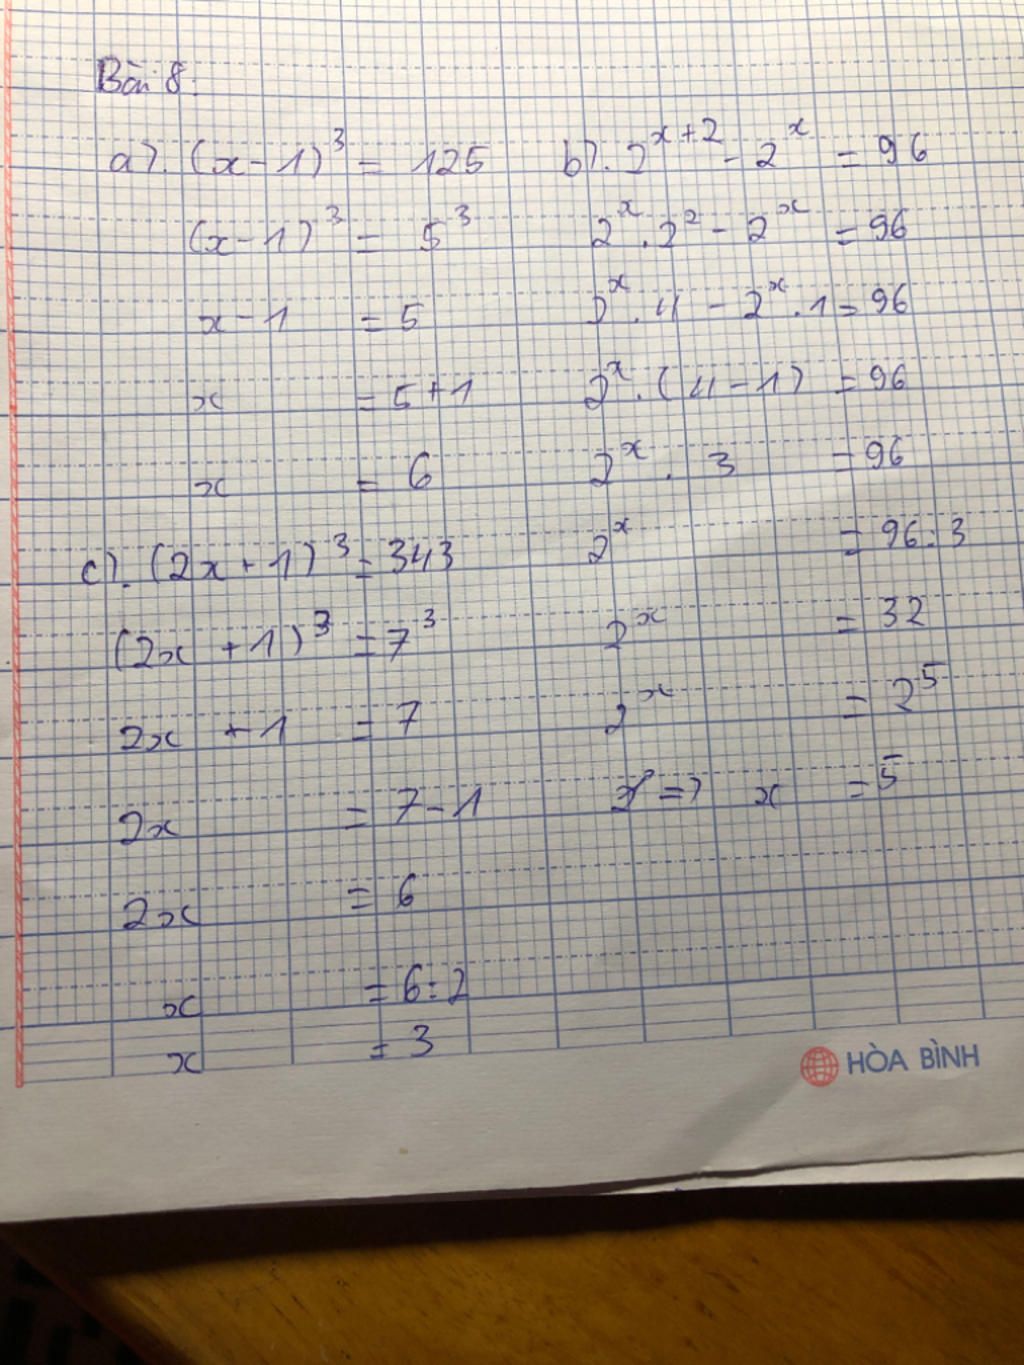 Bài 8:
a). (x-1)³ = 125
(x-1)³ = 5³
x-1 = 5
x = 5+1
x = 6
b). 2ˣ⁺² - 2ˣ = 96
2ˣ . 2² - 2ˣ = 96
2ˣ . 4 - 2ˣ . 1 = 96
2ˣ . (4-1) = 96
2ˣ . 3 = 96
2ˣ = 96:3
2ˣ = 32
2ˣ = 2⁵
=> x = 5
c). (2x+1)³ = 343
(2x+1)³ = 7³
2x+1 = 7
2x = 7-1
2x = 6
x = 6:2
x = 3
HÒA BÌNH